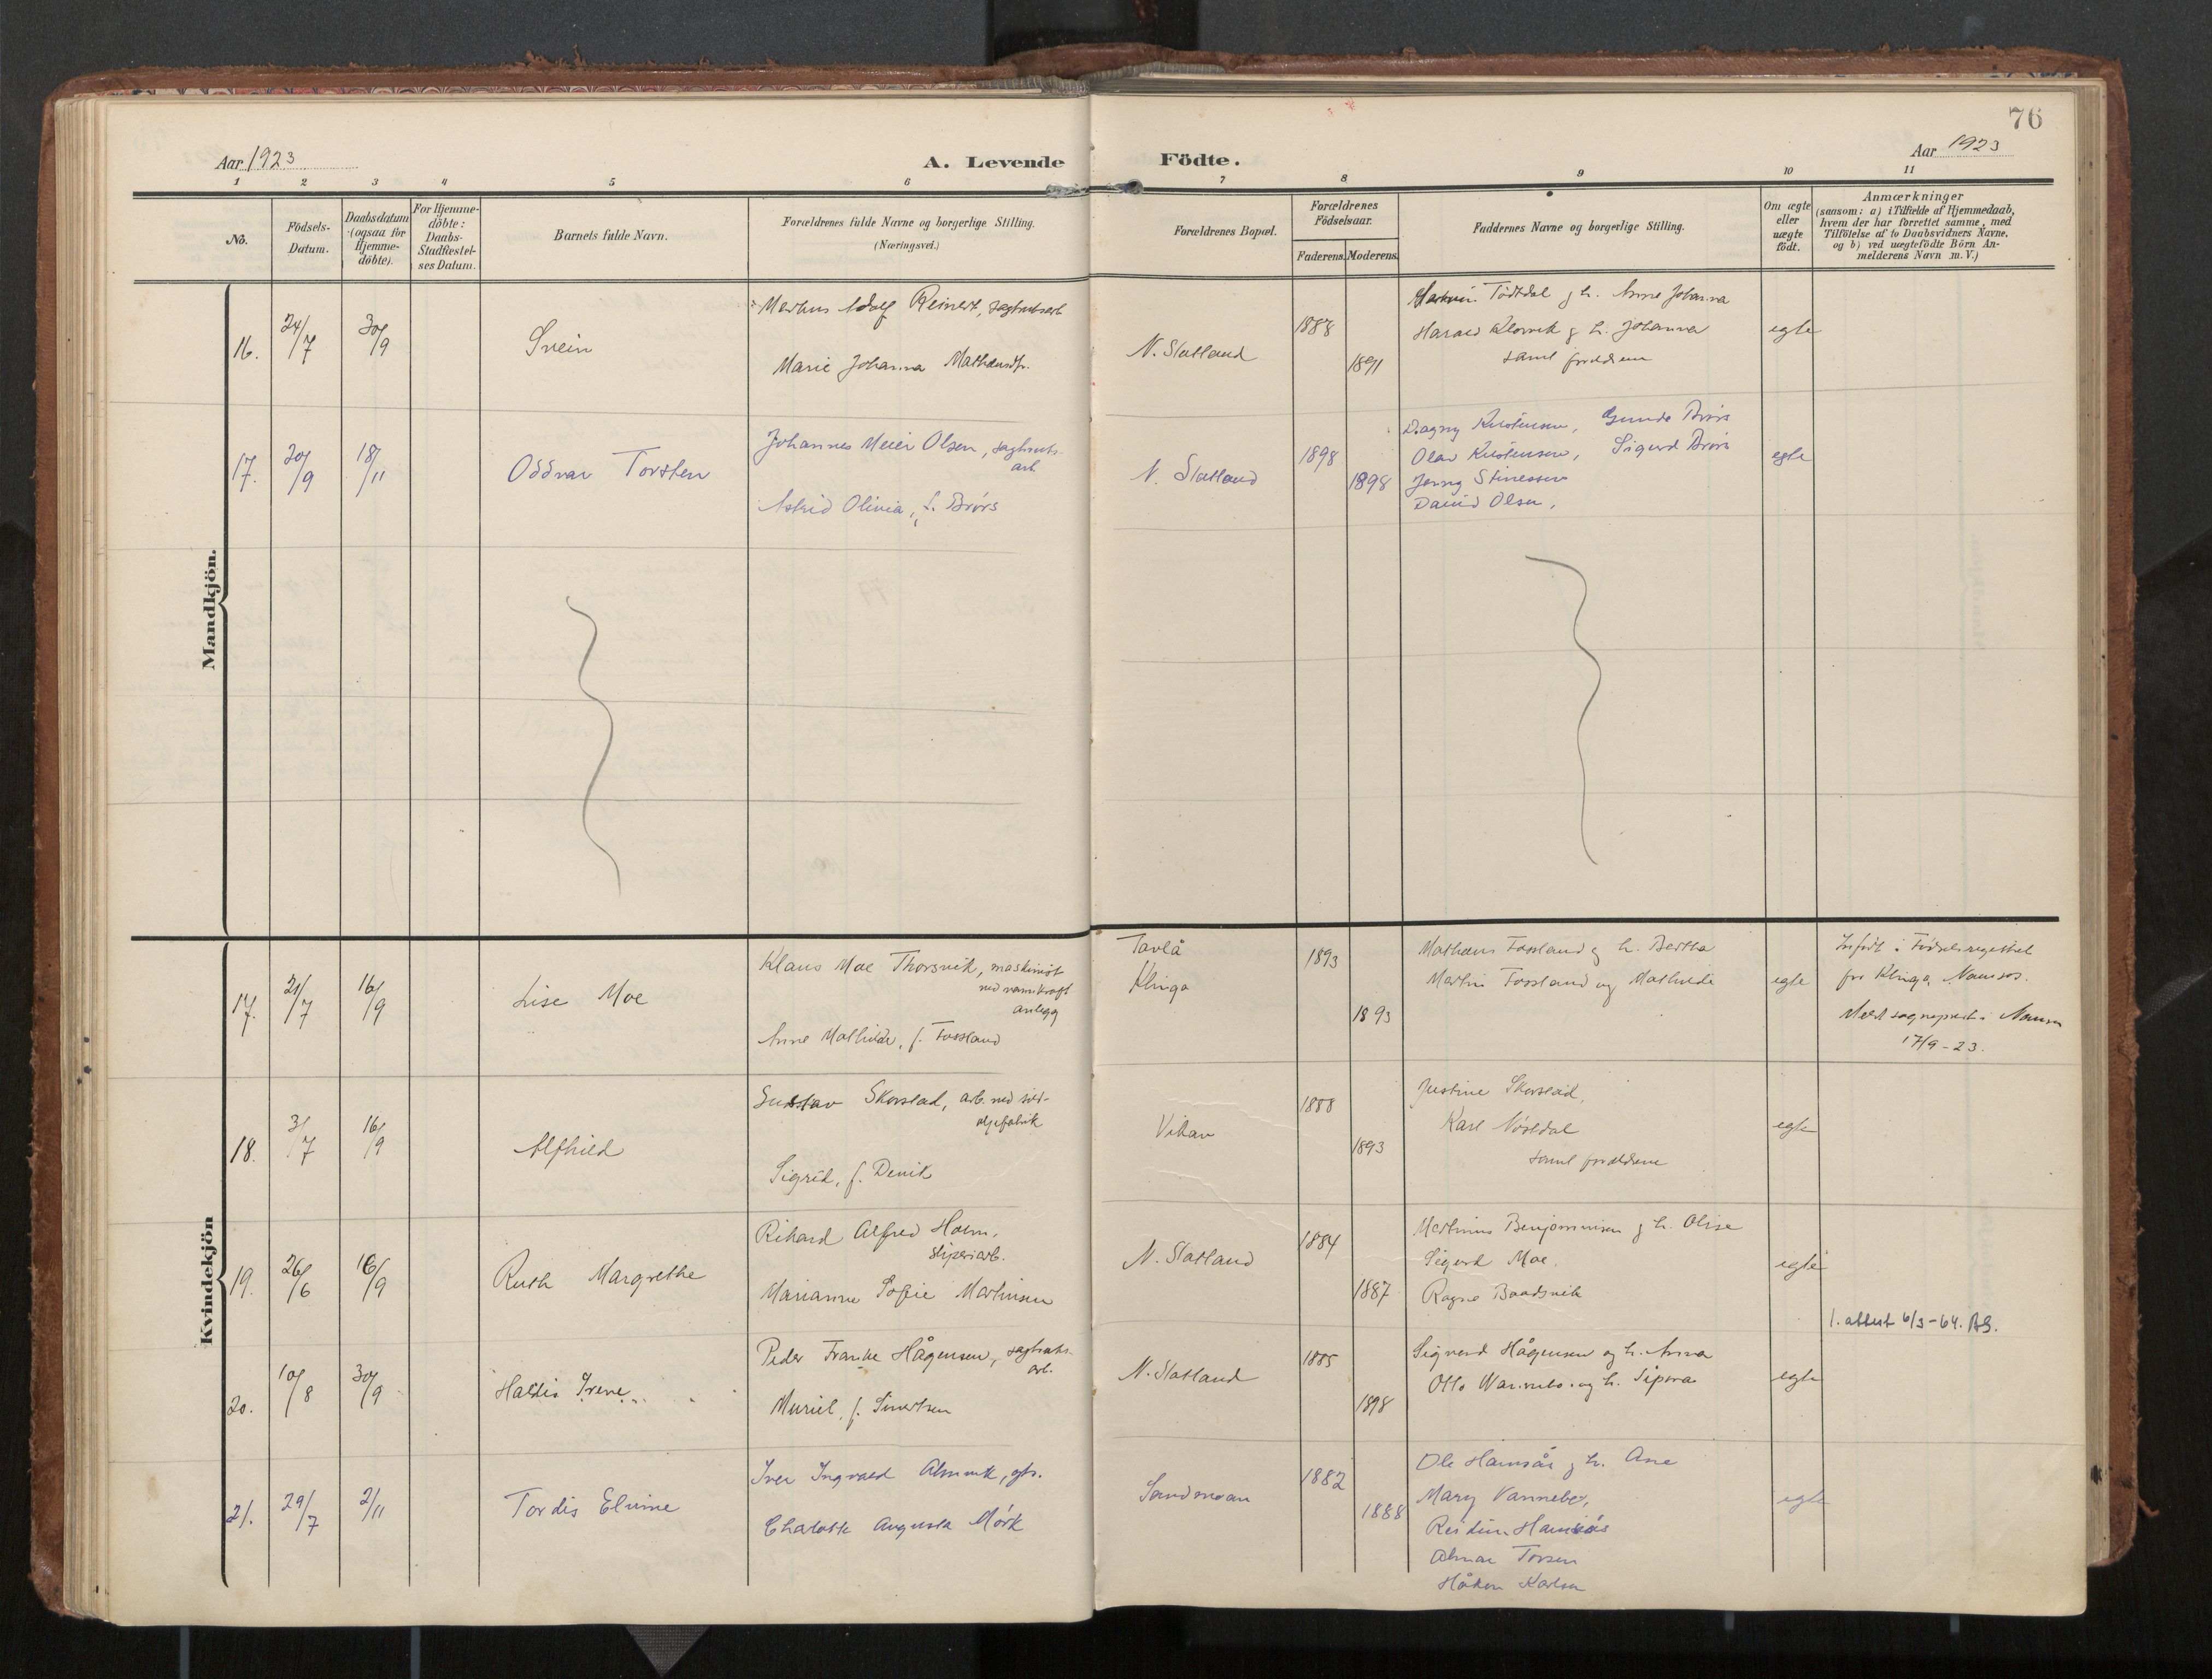 76
Aar 1923
A. Levende
Födte.
Aar 1923
1 2 3 4 5 6 7 8 9 10 11
No.
Födsels-
Datum.
Daabsdatum
(ogsaa for
Hjemme-
döbte).
For Hjemme-
döbte:
Daabs-
Stadfæstel-
ses Datum.
Barnets fulde Navn.
Forældrenes fulde Navne og borgerlige Stilling.
(Næringsvei.)
Forældrenes Bopæl.
Forældrenes
Födselsaar.
Faderens.
Moderens.
Faddernes Navne og borgerlige Stilling.
Om ægte
eller
uægte
födt.
Anmærkninger
(saasom: a) i Tilfælde af Hjemmedaab,
hvem der har forrettet samme, med
Tilföielse af to Daabsvidners Navne,
og b) ved uægtefödte Börn An-
melderens Navn m. V.)
Mandkjön.
16.
24/7
30/9
Svein
Adolf Reinert, sagbruksarb
Marie Johanna
N. Statland
1888
1891
g h. Anna Johanna
Harald g h. Johanna
samt forældrene
egte
17.
30/9
18/11
Oddvar Torsten
Johannes Meier Olsen, sagbruks-
arb
Astrid Olivia, f. Brørs
N. Statland
1898
1898
Dagny Kristensen, Gunda Brørs
Olav Kristensen, Sigurd Brørs
Jenny Stinessen
David Olsen,
egte
Kvindekjön
17.
21/7
16/9
Lise Moe
Klaus Moe Thorsvik, maskinist
ved vannkraft
anlegg
Anne Mathilde, f. Fossland
Tavlå
Klinga
1893
1893
Fossland g h. Bertha
Martin Fossland og Mathilde
egte
Indført i Fødselsregistret
for Klinga, Namsos.
Meldt sogneprest i Namsos
17/9-23.
18.
3/7
16/9
Alfhild
Gustav Skorstad, arb. ved sild-
oljefabrik
Sigrid, f. Devik
Vikan
1888
1893
Justine Skorstad,
Karl
samt forældrene
egte
19.
26/6
16/9
Ruth Margrethe
Rikard Alfred Holm,
sliperiarb.
Marianne Sofie Martinsen
N. Statland
1884
1887
Martinus Benjaminsen g h. Olise
Sigurd Moe.
Ragna Baadsvik
egte
1. attest 6/3-64. AS.
20.
10/8
30/9
Haldis Irene
Peder Franke Hågensen, sagbruks-
arb.
Muriel, f. Sivertsen
N. Statland
1885
1898
Sigvard Hågensen og h. Anna
Otto Wannebo og h.
egte
21.
29/7
2/11
Tordis Elvine
Iver Ingvald Almvik, gbr.
Charlotte Augusta Mørk
Sandmoan
1882
1888
Ole Hamsås g h. Ane
Mary Vannebo,
Hamsås
Almar Torsen
Håkon Karlsen
egte